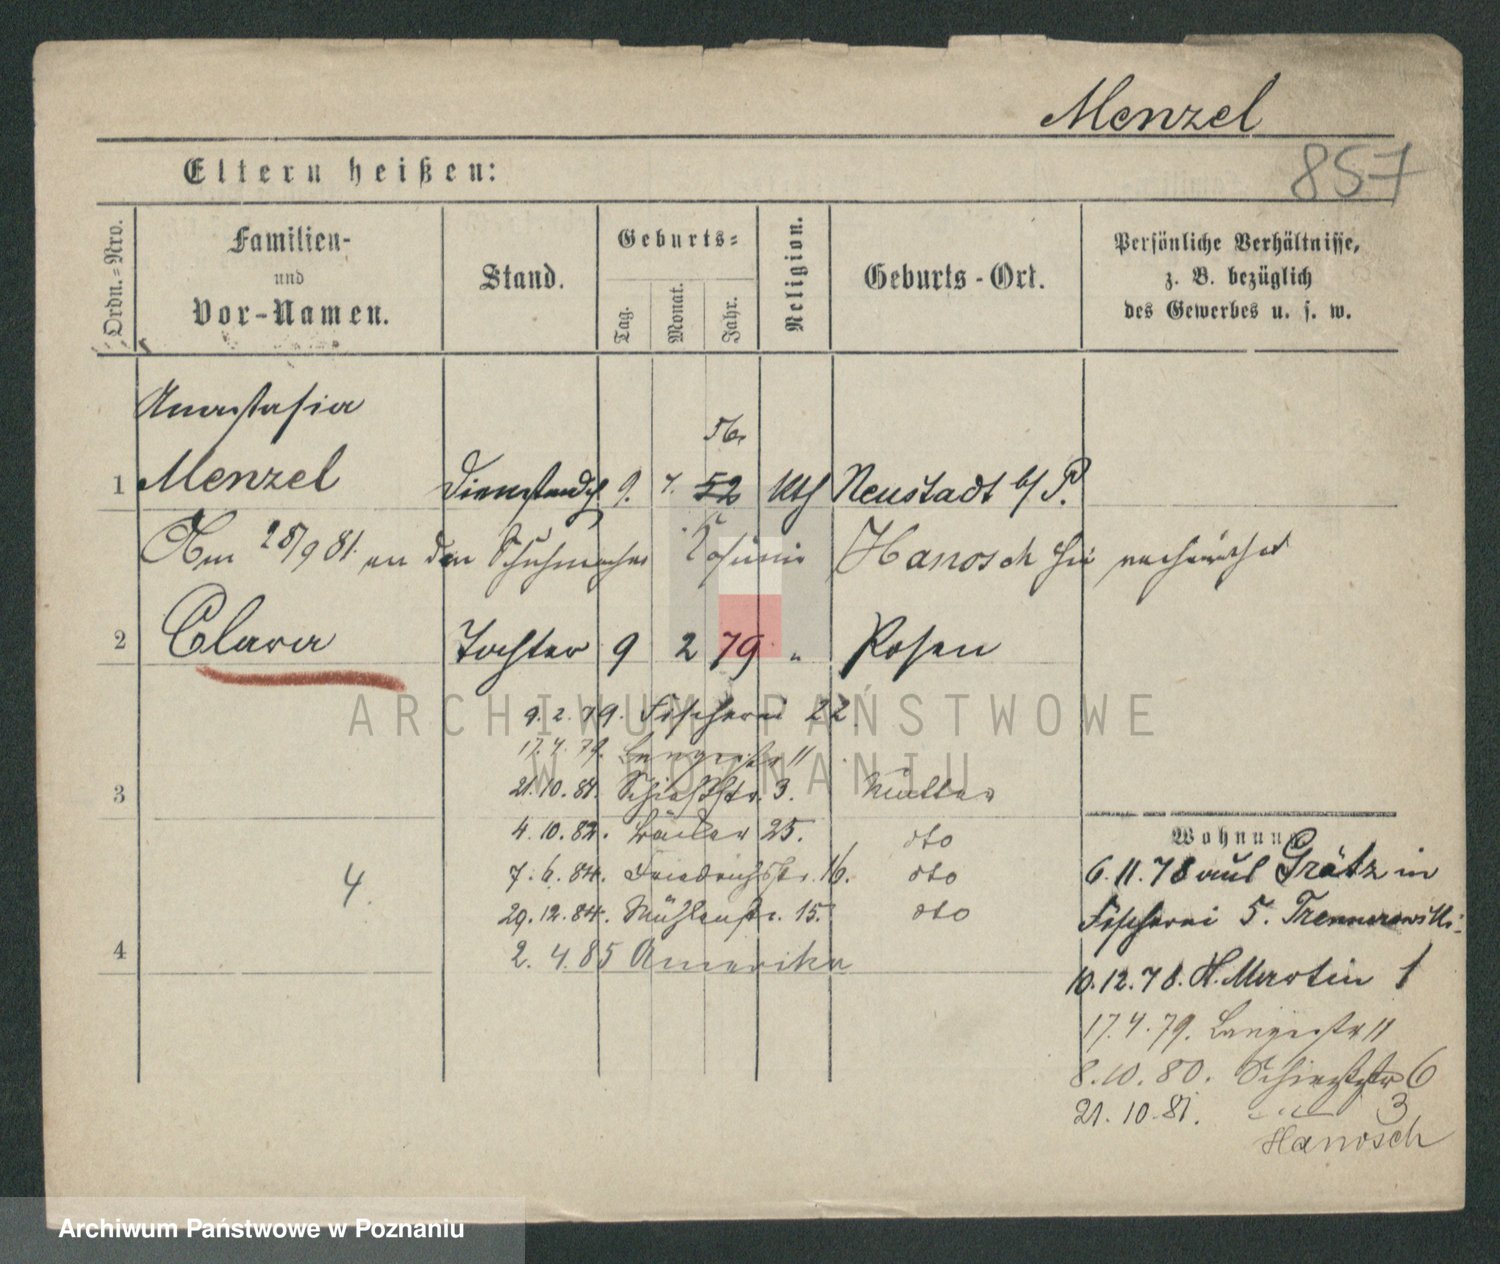 Menzel
857
Eltern heißen:
Ordn.-Nro.
Familien-
und
Vor-Namen.
Stand.
Geburts-
Tag.
Monat.
Jahr.
Religion.
Geburts-Ort.
Persönliche Verhältnisse,
z. B. bezüglich
des Gewerbes u. s. w.
Anastasia
56
1 Menzel 9. 7. 52 kth Neustadt b/P.
Am 28/9 81. an den Schuhmacher Hanosch hie verheirathet
2 Clara Tochter 9 2 79 " Posen
9. 2. 79. Fischerei 22
17. 4. 79. Langestr 11
3 21. 10. 81. Schießstr. 3. Mutter
4. 10. 82. Bäcker 25. dto
4. 7. 6. 84. Friedrichstr. 16. dto
29. 12. 84. Mühlenstr. 15. dto
4 2. 4. 85 Amerika
Wohnung
6. 11. 78 aus Grätz in
Fischerei 5.
10. 12. 78. St. Martin 1
17. 4. 79. Langestr 11
8. 10. 80. Schießstr 6
21. 10. 81. 3
Hanosch
ARCHIWUM PAŃSTWOWE
W POZNANIU
Archiwum Państwowe w Poznaniu